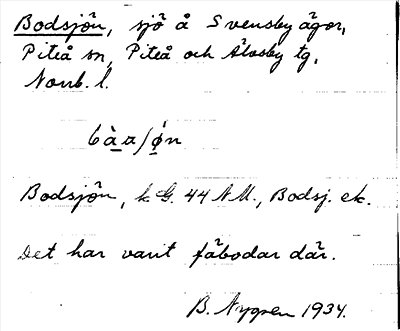 Bodsjön, sjö å Svensby ägor,
Piteå sn, Piteå och Älvsby tg,
Norrb. l.
Bodsjön, k G. 44 NU., Bodsj. ek.
Det har varit fäbodar där.
B. Nygren 1934.